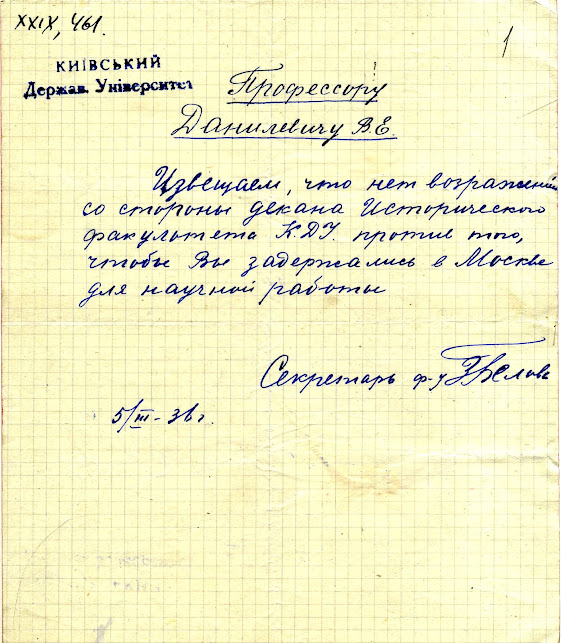 XXIX, 461.
1
КИЇВСЬКИЙ
Держав. Університет
Профессору
Данилевичу В.Е.
Извещаем, что нет возражений
со стороны декана Исторического
факультета К.Д.У. против того,
чтобы Вы задержались в Москве
для научной работы
Секретарь ф-у
5/III - 36 г.